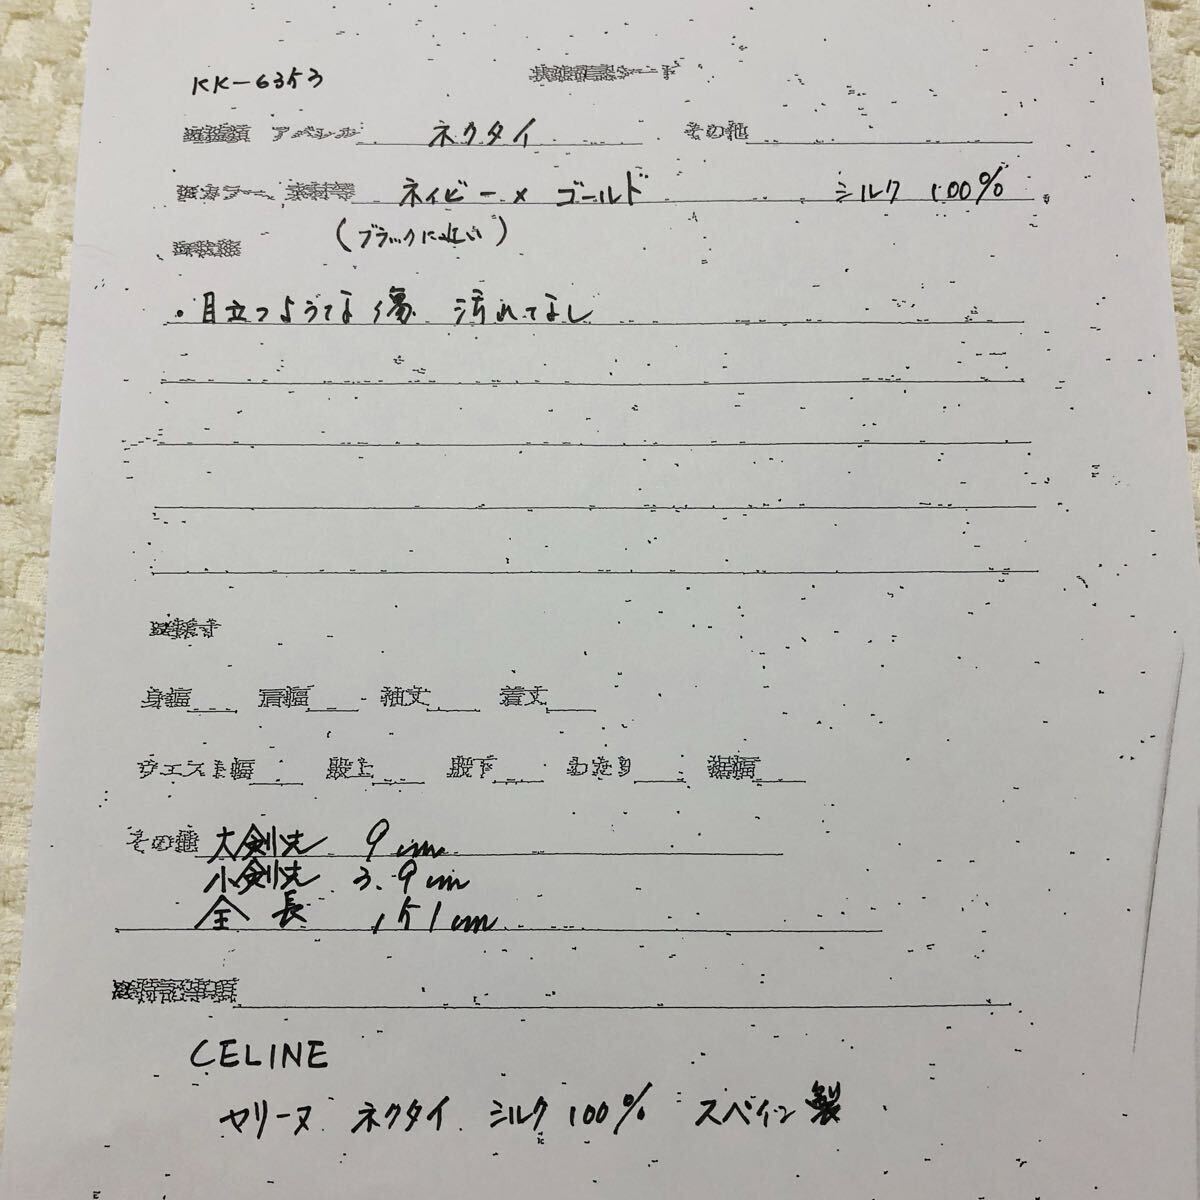 KK-6353
アパレル ネクタイ その他
カラー、素材等 ネイビー × ゴールド シルク 100%
(ブラックに近い)
・目立つような傷 汚れてなし
身幅 肩幅 袖丈 着丈
ウエスト幅 股上 股下 わたり 裾幅
その他 大剣先 9cm
小剣先 3.9cm
全長 151cm
特記事項
CELINE
セリーヌ ネクタイ シルク 100% スペイン製